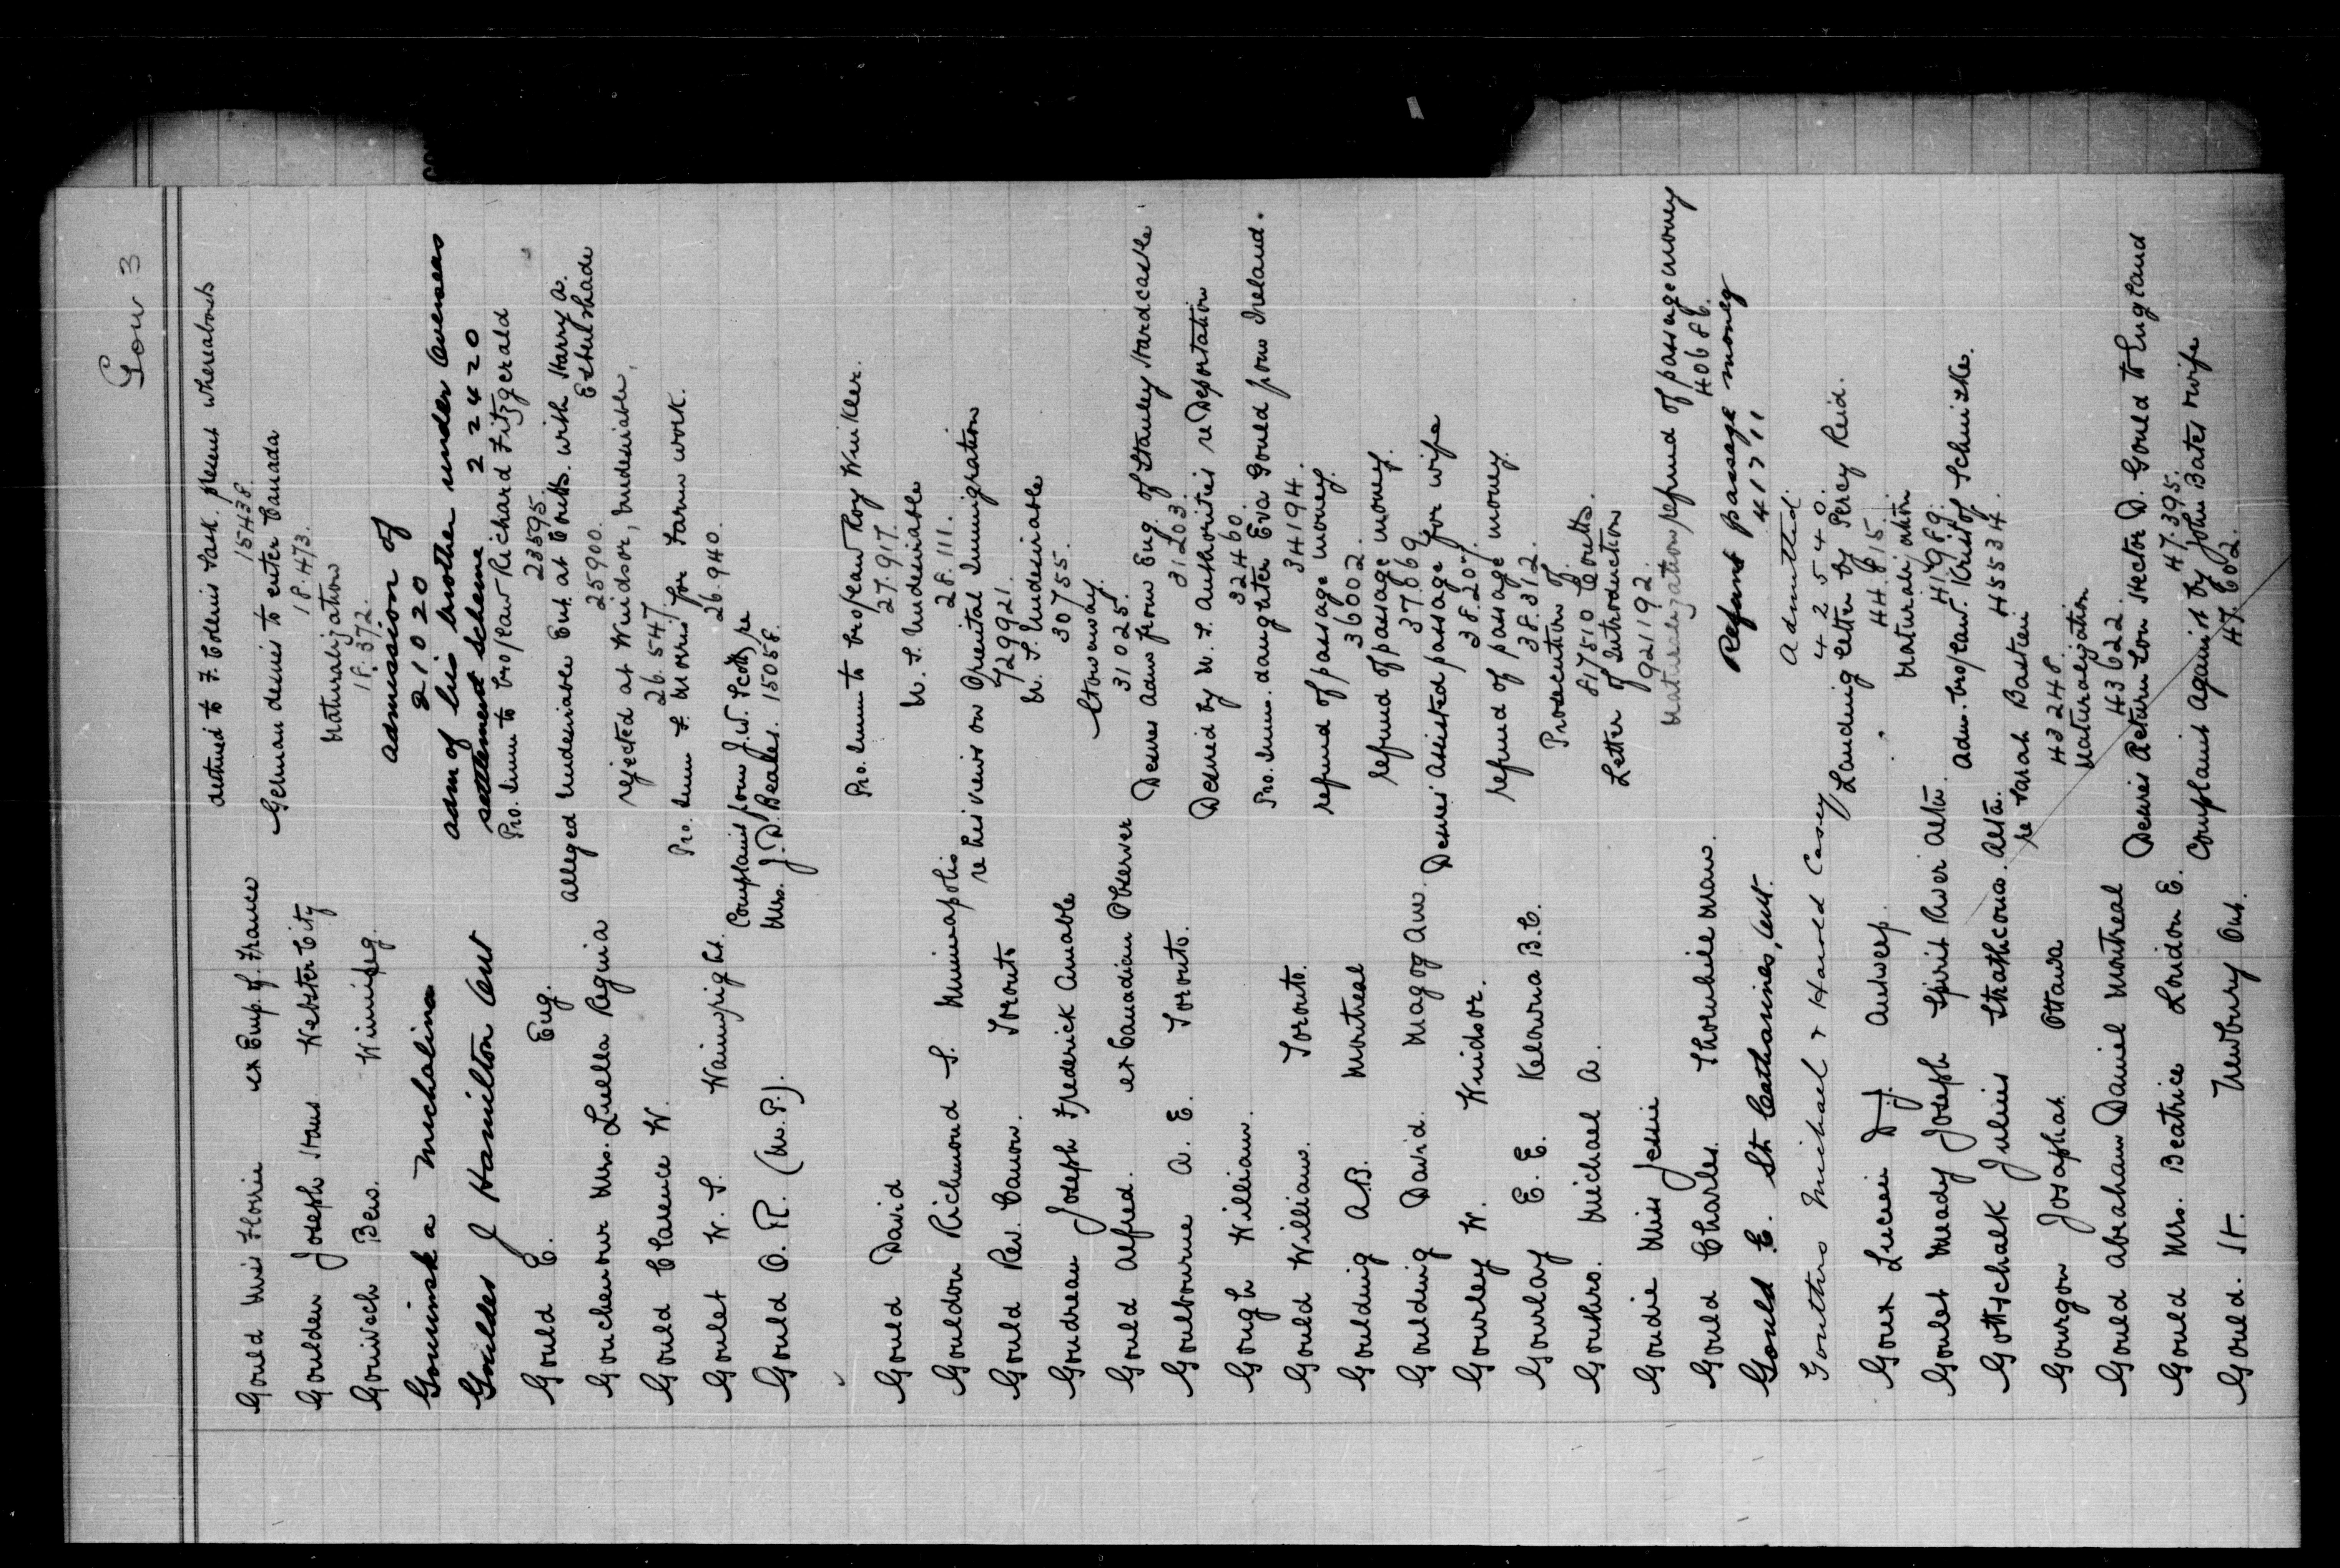 Gou 3
Gould Miss Florrie ex Emp. of. France destined to F. Collins Sask. present whereabouts
15438.
Goulden Joseph Hans Webster City German desires to enter Canada
18.473.
Gouvech Ben. Winnipeg. Naturalization
18.372.
Gouinska Michalina admission of
21020
Goulder J Hamilton Ont adm of his brother under Overseas
settlement scheme 22420
Gould C. Eng. Pro. Imm to bro/law Richard Fitzgerald
23595.
Gouchenour Mrs. Luella Regina alleged undesirable Ent. at Coutts. with Harry a.
25900. Ethel Shade
Gould Clarence W. rejected at Windsor, undesirable,
26.547.
Goulet W. S. Wainwright. Pro. Imm S. Morris for Farm work.
26.940.
Gould O. R. (M.P.). Complaint from J.W. Scott, re
Mrs. J. D. Beales. 15058.
Gould David Pro. Imm to bro/law Roy Winkler.
27.917.
Gouldon Richmond S. Minneapolis U. S. Undesirable
28.111.
Gould Rev. Canon. Toronto re his views on Oriental Immigration
729921.
Goudreau Joseph Frederick Amable U. S. Undesirable
30755.
Gould Alfred. ex Canadian Observer Stowaway.
31025.
Goulbourne A. E. Toronto. Desires adm from Eng. of Stanley Hardcastle
31203.
Gough William. Desired by U. S. Authorities re Deportation
32460.
Gould William. Toronto. Pro. Imm. daughter Eva Gould from Ireland.
34194.
Goulding A.B. Montreal refund of passage money.
36002.
Goulding David. Magog Que. refund of passage money.
37869.
Gourley W. Windsor. Desires Assisted passage for wife
38.207.
Gourlay E. E. Kelowna B.C. refund of passage money.
38.312.
Gouthro. Michael A. Prosecution of.
81750 Coutts.
Goudie Miss Jessie Letter of Introduction
921192.
Gould Charles. Thornhill Man. Naturalization/refund of passage money
40686.
Gould C. St. Catharines, Ont. Refund passage money
41711
Gouthro Michael & Harold Casey Admitted.
42540.
Goux Lucien D.J. Antwerp. Landing letter by Percy Reid.
44.815.
Goulet Meady Joseph Spirit River Alta. Naturalization
41989.
Gottschalk Julius Strathcona. Alta. Adm. bro/law. Kristof Schnitzke.
45534.
Gourgon Josaphat Ottawa re Sarah Bastien
43248.
Gould Abraham Daniel Montreal Naturalization
43622.
Gould Mrs. Beatrice London E. Desires Return Son Hector D. Gould to England
47.395.
Gould. H. Newbury Ont. Complaint against by John Bates & wife
47.602.